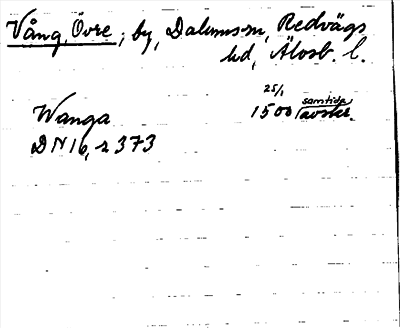 Vång, Övre; by, Dalums sn, Redvägs
hd, Älvsb. l.
25/1 samtida
Wanga 1500 avskr.
DN 16, s 373